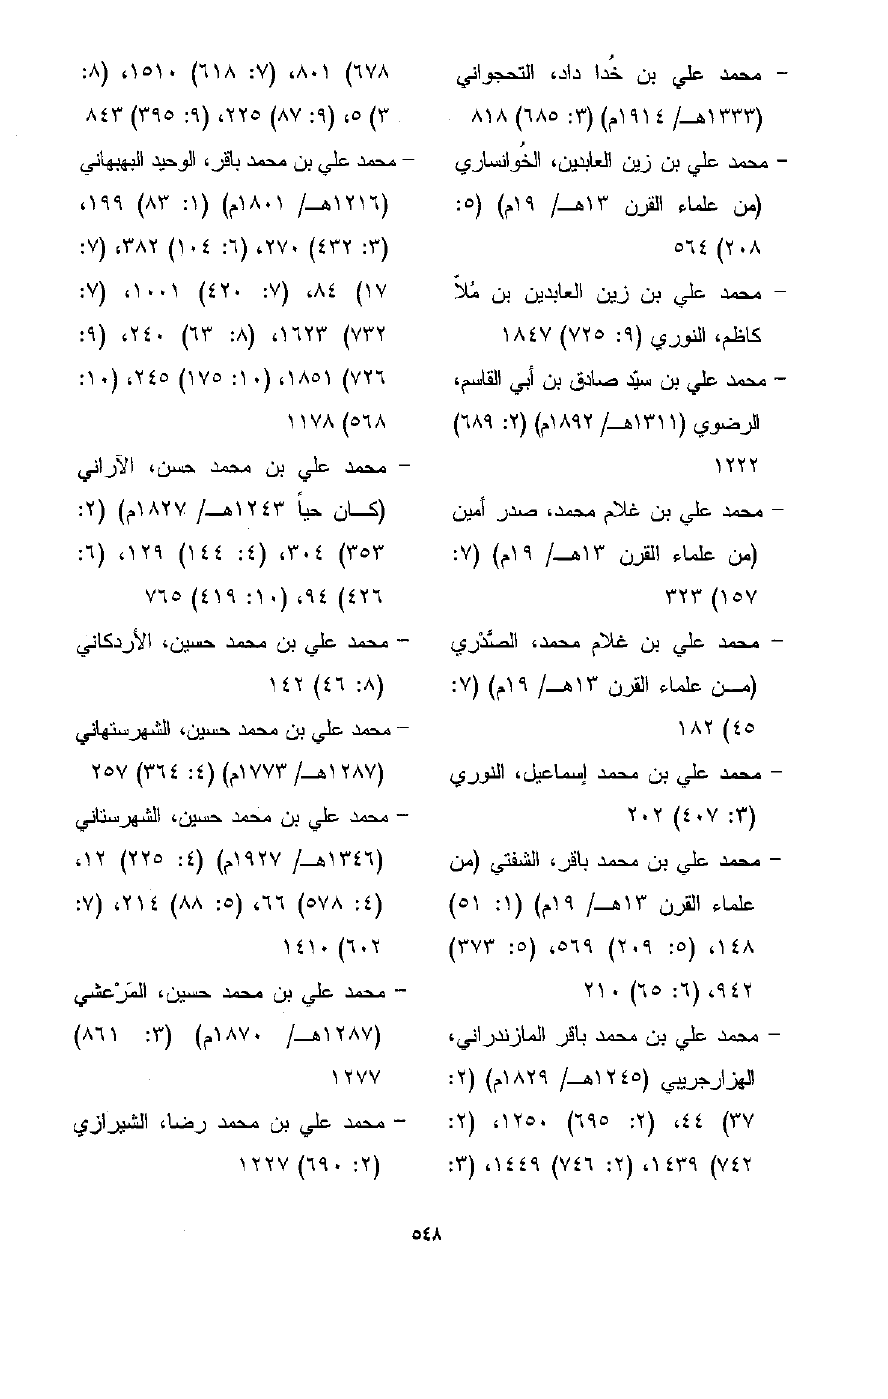 - محمد علي بن خُدا داد، التحجواني
(١٣٣٣هـ/ ١٩١٤م) (٣: ٦٨٥) ٨١٨
- محمد علي بن زين العابدين، الخُوانساري
(من علماء القرن ١٣هـ/ ١٩م) (٥:
٢٠٨) ٥٦٤
- محمد علي بن زين العابدين بن مُلاّ
كاظم، النوري (٩: ٧٢٥) ١٨٤٧
- محمد علي بن سيّد صادق بن أبي القاسم،
الرضوي (١٣١١هـ/ ١٨٩٢م) (٢: ٦٨٩)
١٢٢٢
- محمد علي بن غلام محمد، صدر أمين
(من علماء القرن ١٣هـ/ ١٩م) (٧:
١٥٧) ٣٢٣
- محمد علي بن غلام محمد، الصَّدْري
(مـن علماء القرن ١٣هـ/ ١٩م) (٧:
٤٥) ١٨٢
- محمد علي بن محمد إسماعيل، النوري
(٣: ٤٠٧) ٢٠٢
- محمد علي بن محمد باقر، الشفتي (من
علماء القرن ١٣هـ/ ١٩م) (١: ٥١)
١٤٨، (٥: ٢٠٩) ٥٦٩، (٥: ٣٧٣)
٩٤٢، (٦: ٦٥) ٢١٠
- محمد علي بن محمد باقر المازندراني،
الهزارجريبي (١٢٤٥هـ/ ١٨٢٩م) (٢:
٣٧) ٤٤، (٢: ٦٩٥) ١٢٥٠، (٢:
٧٤٢) ١٤٣٩، (٢: ٧٤٦) ١٤٤٩، (٣:
٦٧٨) ٨٠١، (٧: ٦١٨) ١٥١٠، (٨:
٣) ٥، (٩: ٨٧) ٢٢٥، (٩: ٣٩٥) ٨٤٣
- محمد علي بن محمد باقر، الوحيد البهبهاني
(١٢١٦هـ/ ١٨٠١م) (١: ٨٣) ١٩٩،
(٣: ٤٣٢) ٢٧٠، (٦: ١٠٤) ٣٨٢، (٧:
١٧) ٨٤، (٧: ٤٢٠) ١٠٠١، (٧:
٧٣٢) ١٦٢٣، (٨: ٦٣) ٢٤٠، (٩:
٧٢٦) ١٨٥١، (١٠: ١٧٥) ٢٤٥، (١٠:
٥٦٨) ١١٧٨
- محمد علي بن محمد حسن، الآراني
(كـان حياً ١٢٤٣هـ/ ١٨٢٧م) (٢:
٣٥٣) ٣٠٤، (٤: ١٤٤) ١٢٩، (٦:
٤٢٦) ٩٤، (١٠: ٤١٩) ٧٦٥
- محمد علي بن محمد حسين، الأردكاني
(٨: ٤٦) ١٤٢
- محمد علي بن محمد حسين، الشهرستهاني
(١٢٨٧هـ/ ١٧٧٣م) (٤: ٣٦٤) ٢٥٧
- محمد علي بن محمد حسين، الشهرستاني
(١٣٤٦هـ/ ١٩٢٧م) (٤: ٢٢٥) ١٢،
(٤: ٥٧٨) ٦٦، (٥: ٨٨) ٢١٤، (٧:
٦٠٢) ١٤١٠
- محمد علي بن محمد حسين، المَرْعشي
(١٢٨٧هـ/ ١٨٧٠م) (٣: ٨٦١)
١٢٧٧
- محمد علي بن محمد رضا، الشيرازي
(٢: ٦٩٠) ١٢٢٧
٥٤٨